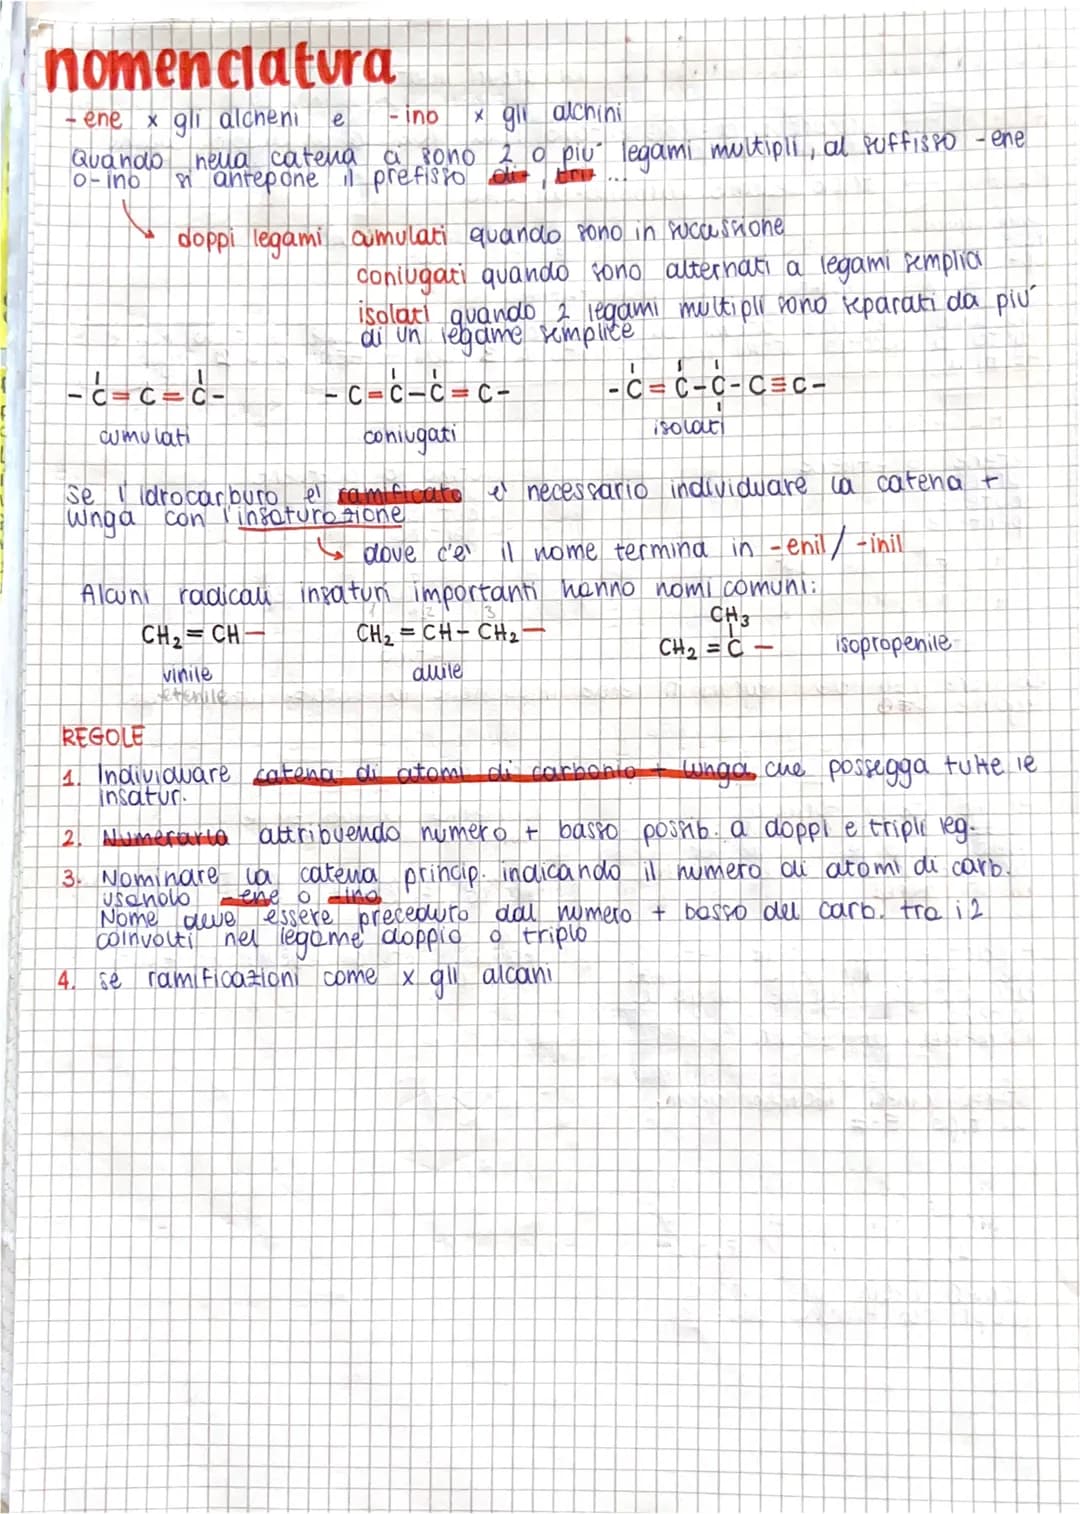 nomenclatura
-ene x gli alcheni e -ino x gli alchini
Quando nella catena ci sono 2 o più legami multipli, al suffisso -ene
o-ino si antepone il prefisso di-, tri- ...
doppi legami cumulati quando sono in successione
coniugati quando sono alternati a legami semplici
isolati quando 2 legami multipli sono separati da più
di un legame semplice
-C=C=C- -C=C-C=C- -C=C-C-C≡C-
cumulati coniugati isolati
se l'idrocarburo è ramificato è necessario individuare la catena +
lunga con l'insaturazione
dove c'è il nome termina in -enil/-inil
Alcuni radicali insaturi importanti hanno nomi comuni:
2 3 CH₃
CH₂=CH- CH₂=CH-CH₂- CH₂=C- isopropenile
vinile allile
etenile
REGOLE
1. Individuare catena di atomi di carbonio + lunga che possegga tutte le
insatur.
2. Numerarla attribuendo numero + basso possib. a doppi e tripli leg.
3. Nominare la catena princip. indicando il numero di atomi di carb.
usando -ene o -ino
Nome deve essere preceduto dal numero + basso del carb. tra i 2
coinvolti nel legame doppio o triplo
4. se ramificazioni come x gli alcani